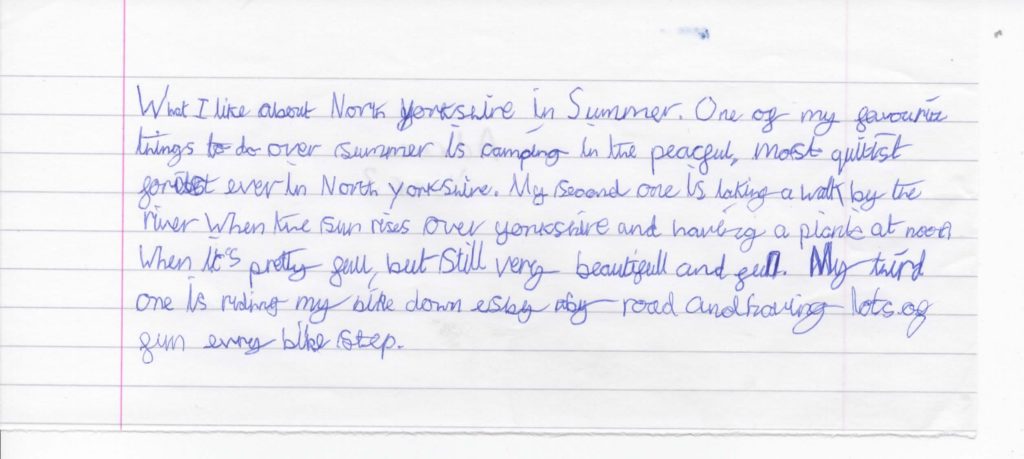 What I like about North Yorkshire in Summer. One of my favourite
things to do over summer is camping in the peacful, most quitist
forest ever in North yorkshire. My second one is taking a walk by the
river when the sun rises over yorkshire and having a picnic at noon
When it's pretty full, but still very beautifull and full. My third
one is riding my bike down esby road and having lots of
fun every bike step.